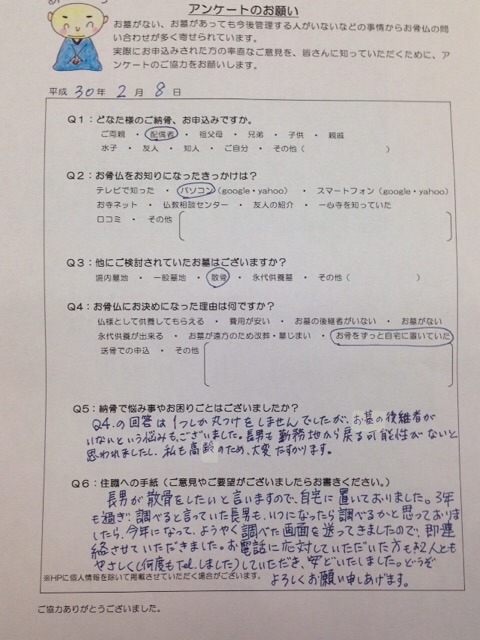 アンケートのお願い
お墓がない、お墓があっても今後管理する人がいないなどの事情からお骨仏の問
い合わせが多く寄せられています。
実際にお申込みされた方の率直なご意見を、皆さんに知っていただくために、ア
ンケートのご協力をお願いします。
平成 30年 2月 8日
Q1：どなた様のご納骨、お申込みですか。
ご両親 ・ 配偶者 ・ 祖父母 ・ 兄弟 ・ 子供 ・ 親戚
水子 ・ 友人 ・ 知人 ・ ご自分 ・ その他（　　　　　）
Q2：お骨仏をお知りになったきっかけは？
テレビで知った ・ パソコン（google・yahoo） ・ スマートフォン（google・yahoo）
お寺ネット ・ 仏教相談センター ・ 友人の紹介 ・ 一心寺を知っていた
口コミ ・ その他
Q3：他にご検討されていたお墓はございますか？
境内墓地 ・ 一般墓地 ・ 散骨 ・ 永代供養墓 ・ その他（　　　　　）
Q4：お骨仏にお決めになった理由は何ですか？
仏様として供養してもらえる ・ 費用が安い ・ お墓の後継者がいない ・ お墓がない
永代供養が出来る ・ お墓が遠方のため改葬・墓じまい ・ お骨をずっと自宅に置いていた
送骨での申込 ・ その他
Q5：納骨で悩み事やお困りごとはございましたか？
Q4.の回答は1つしか丸つけをしませんでしたが、お墓の後継者が
いないという悩みもございました。長男も勤務地から戻る可能性がないと
思われましたし、私も高齢のため、大変たすかります。
Q6：住職への手紙（ご意見やご要望がございましたらお書きください。）
長男が散骨をしたいと言いますので、自宅に置いておりました。3年
も過ぎ、調べると言っていた長男も、いつになったら調べるかと思っておりま
したら、今年になって、ようやく調べた画面を送ってきましたので、即連
絡させていただきました。お電話に応対していただいた方も2人とも
やさしく（何度もTelしました）していただき、安どいたしました。どうぞ
よろしくお願い申しあげます。
※HPに個人情報を除いて掲載させていただく場合がございます。
ご協力ありがとうございました。